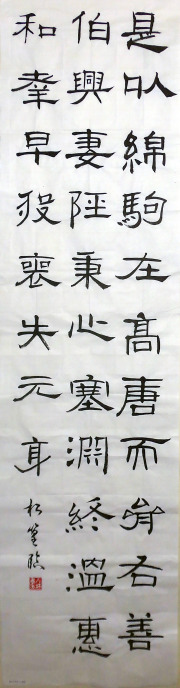 是以綿駒在高唐而齊右善
伯興妻陘秉心塞淵終溫惠
和早歿喪失元身
臨